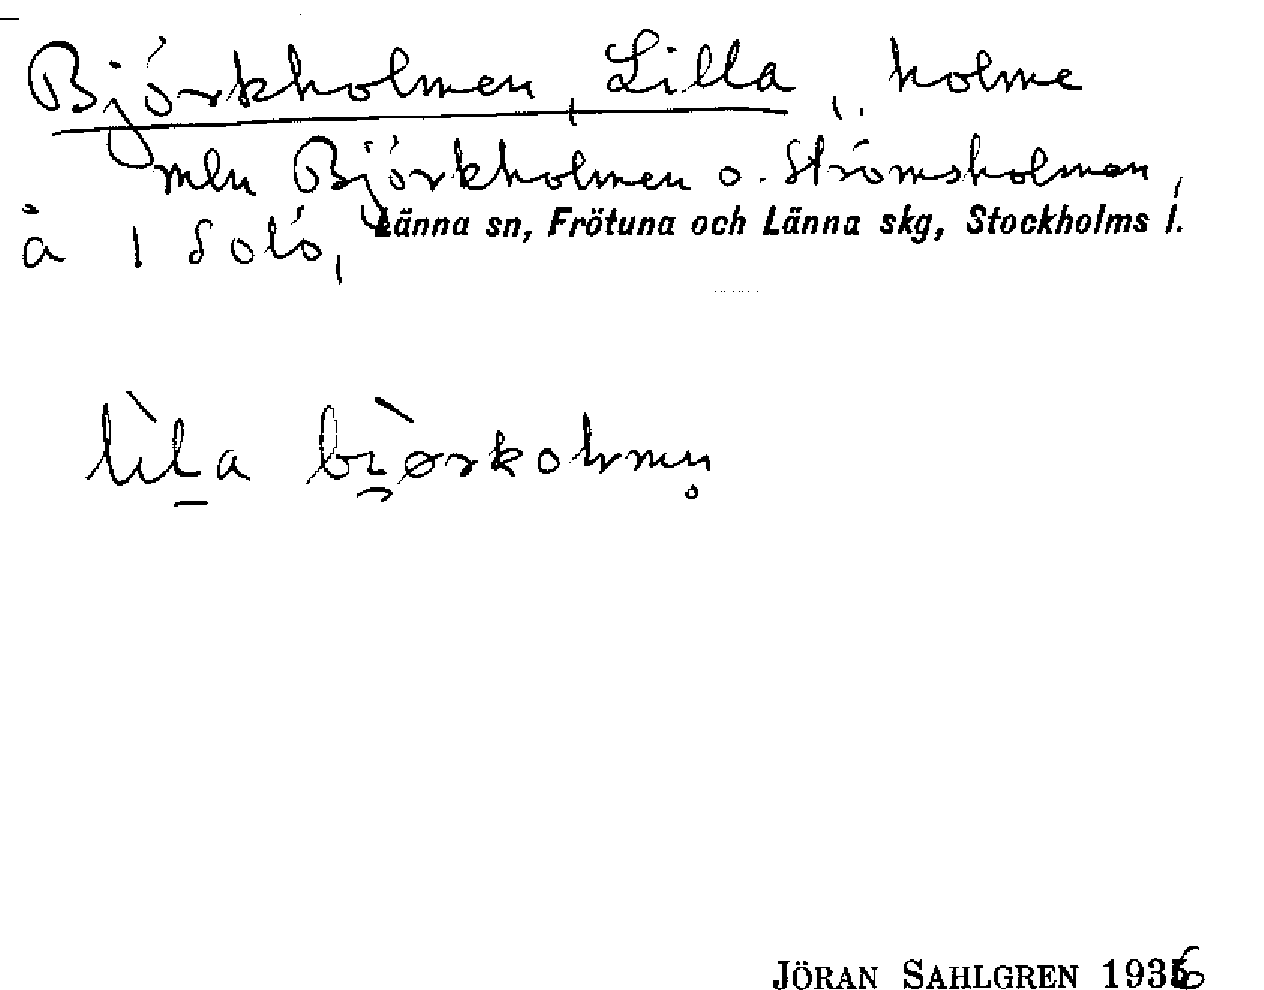 Björkholmen, Lilla, holme
mln Björkholmen o. Strömsholmen,
å 1 Solö, Länna sn, Frötuna och Länna skg, Stockholms l.
lìl̲a bi̯ørkolmn̥
JÖRAN SAHLGREN 1936